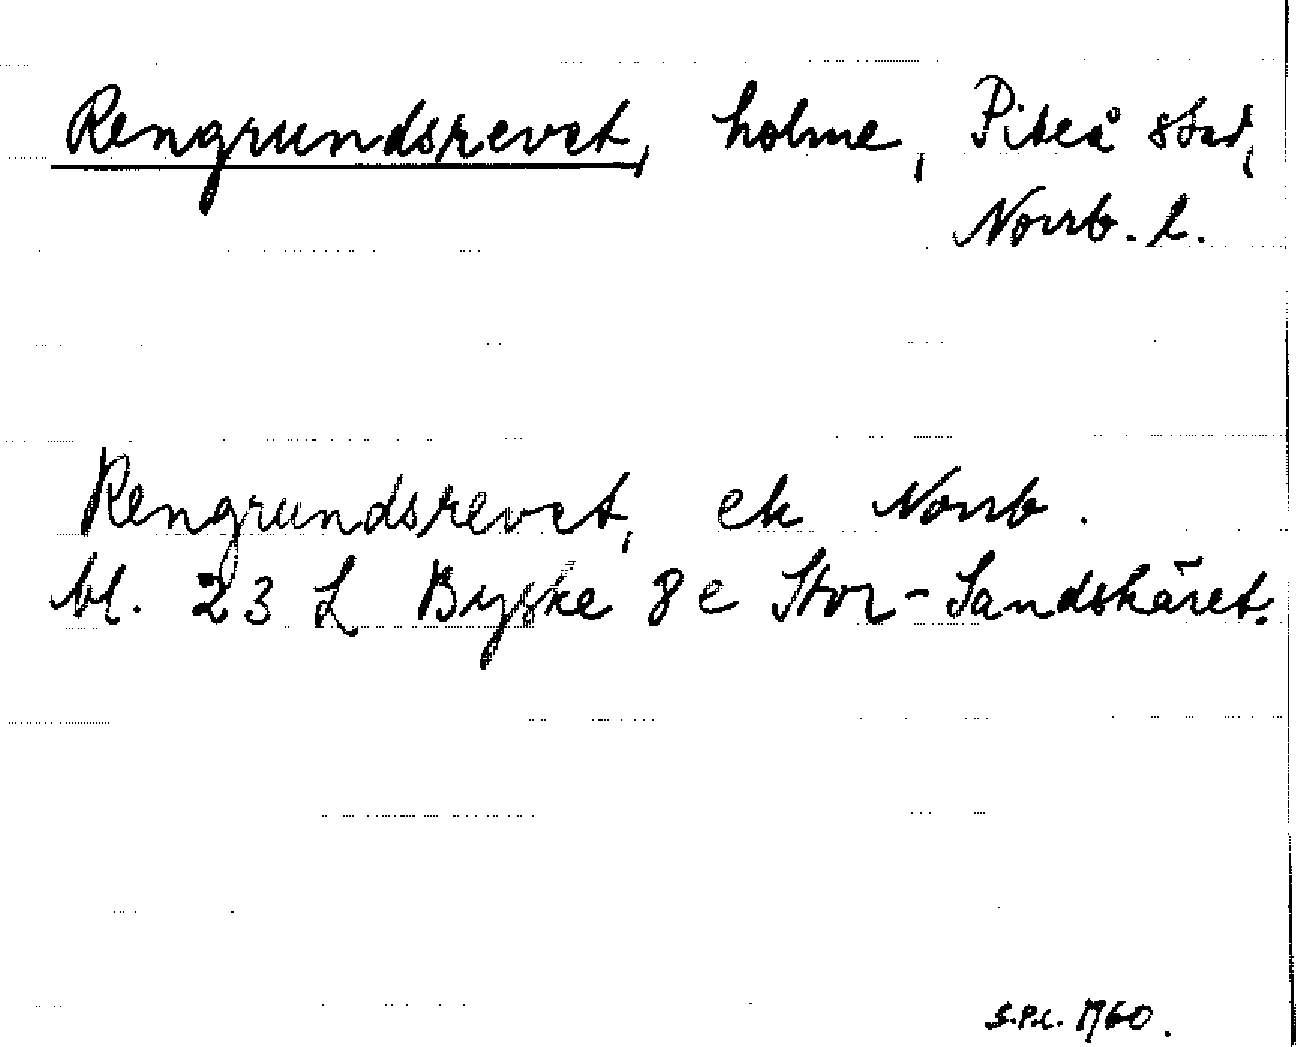 Rengrundsrevet, holme, Piteå stad,
Norrb. l.
Rengrundsrevet, ek Norrb.
bl. 23 L Byske 8e Stor-Sandskäret.
S.P.L. 1960.